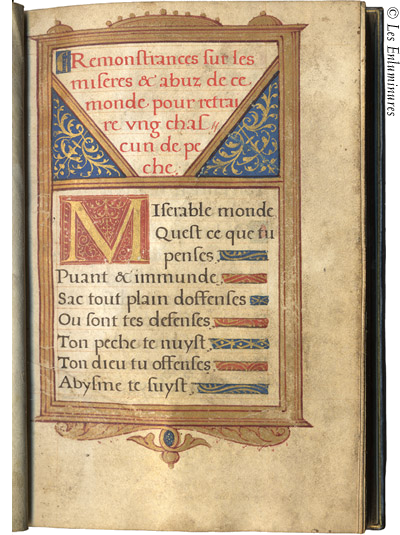 Remonstrances sur les
miseres & abuz de ce
monde pour retrai
re vng chaſ
cun de pe
che.
Miserable monde
Quest ce que tu
penses
Puant & immunde
Sac tout plain doffenses
Ou sont tes defenses
Ton peche te nuyst
Ton dieu tu offenses
Abysme te suyst
© Les Enluminures